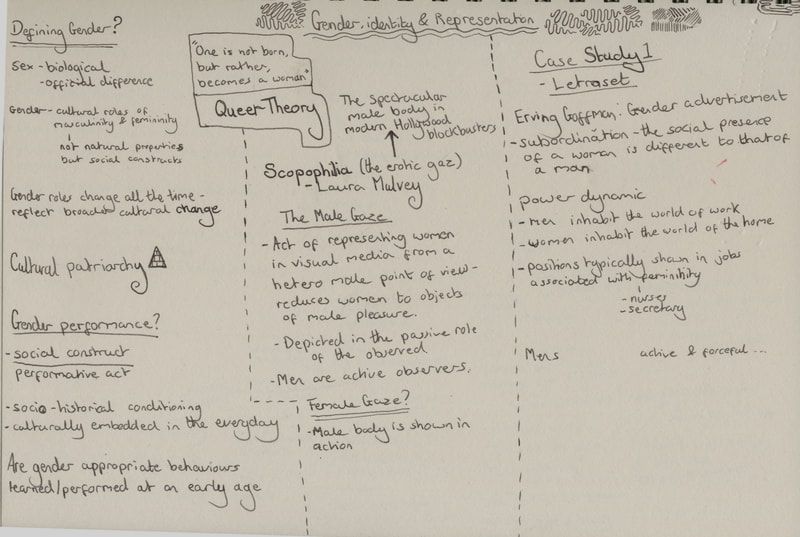 Gender, identity & Representation
Defining Gender?
Sex - biological
- official difference
Gender - cultural roles of
masculinity & femininity
not natural properties
but social constructs
Gender roles change all the time -
reflect broader cultural change
Cultural patriarchy
Gender performance?
- social construct
performative act
- socio-historical conditioning
- culturally embedded in the everyday
Are gender appropriate behaviours
learned/performed at an early age
"One is not born,
but rather,
becomes a woman"
Queer Theory
The Spectacular
male body in
modern Hollywood
blockbusters
Scopophilia (the erotic gaz)
- Laura Mulvey
The Male Gaze
- Act of representing women
in visual media from a
hetero male point of view -
reduces women to objects
of male pleasure.
- Depicted in the passive role
of the observed
- Men are active observers.
Female Gaze?
- Male body is shown in
action
Case Study 1
- Letraset
Erving Goffman: Gender advertisement
- subordination - the social presence
of a woman is different to that of
a man
power dynamic
- Men inhabit the world of work
- women inhabit the world of the home
- positions typically shown in jobs
associated with femininity
- nurses
- secretary
Mens active & forceful ...